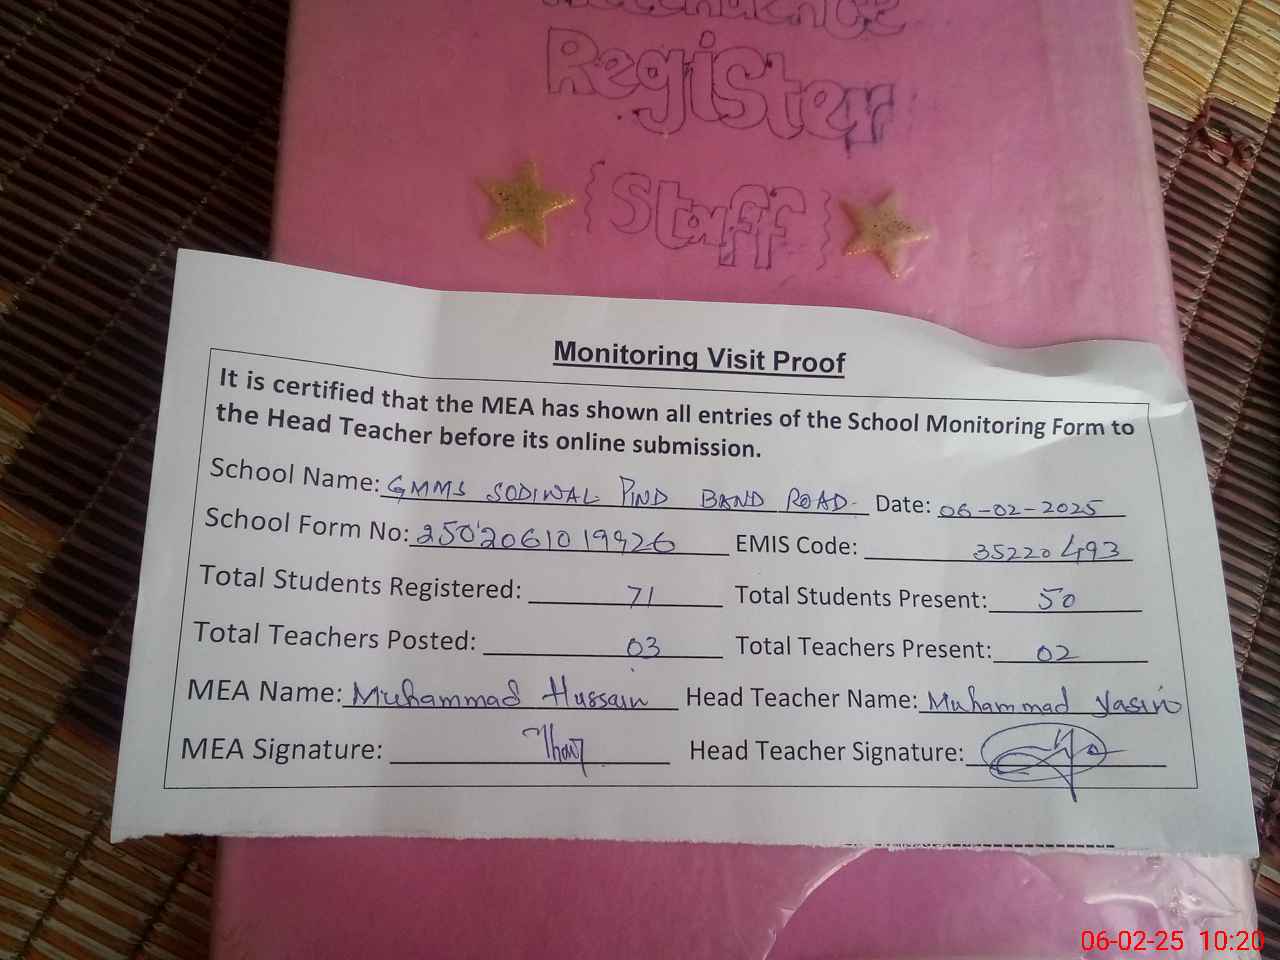 Attendance
Register
{Staff}
Monitoring Visit Proof
It is certified that the MEA has shown all entries of the School Monitoring Form to
the Head Teacher before its online submission.
School Name: GMMS SODIWAL PIND BAND ROAD. Date: 06-02-2025
School Form No: 2502061019926 EMIS Code: 35220493
Total Students Registered: 71 Total Students Present: 50
Total Teachers Posted: 03 Total Teachers Present: 02
MEA Name: Muhammad Hussain Head Teacher Name: Muhammad Yasin
MEA Signature: Head Teacher Signature:
06-02-25 10:20